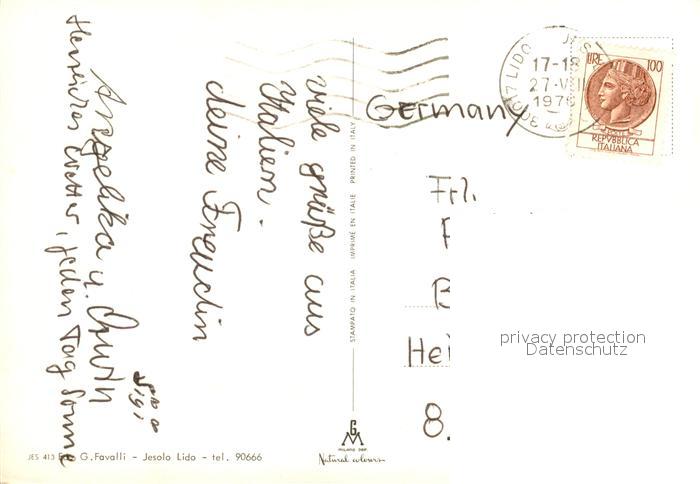 viele grüße aus
Italien.
deine Freundin
Angelika u. Erwin
Sigi
Herrliches Wetter, jeden Tag Sonne
Germany
Frl.
Hei
8.
17-18
27-VII
1976
LIRE 100
REPVBBLICA
ITALIANA
STAMPATO IN ITALIA IMPRIMÉ EN ITALIE PRINTED IN ITALY
JES 413 G. Favalli - Jesolo Lido - tel. 90666
GM
MILANO DEP.
Natural colours
privacy protection
Datenschutz